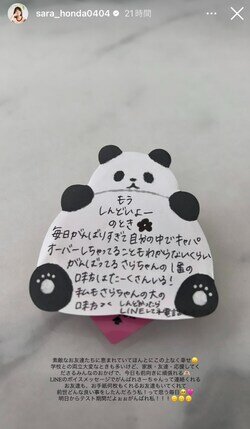 sara_honda0404 21時間
もう
しんどいよー
のとき
毎日がんばりすぎて自分の中でキャパ
オーバーしちゃってることもわからないくらい
がんばってるさらちゃんの1番の
味方はたーくさんいる!
私もさらちゃんの大の
味方
しんどかったら
LINEしてね
素敵なお友達たちに恵まれていてほんとにこの上なく幸せ😊
学校との両立大変なときも多いけど、家族・友達・応援してく
ださるみんなのおかげで、今日も前向きに頑張れる
LINEのボイスメッセージでがんばれさーちゃんって連絡くれる
お友達も、お手紙何枚もくれるお友達もいてくれて
前世どんな良い事をしたんだろう私!って思う毎日
明日からテスト期間だよぉぉがんばれ私!!!